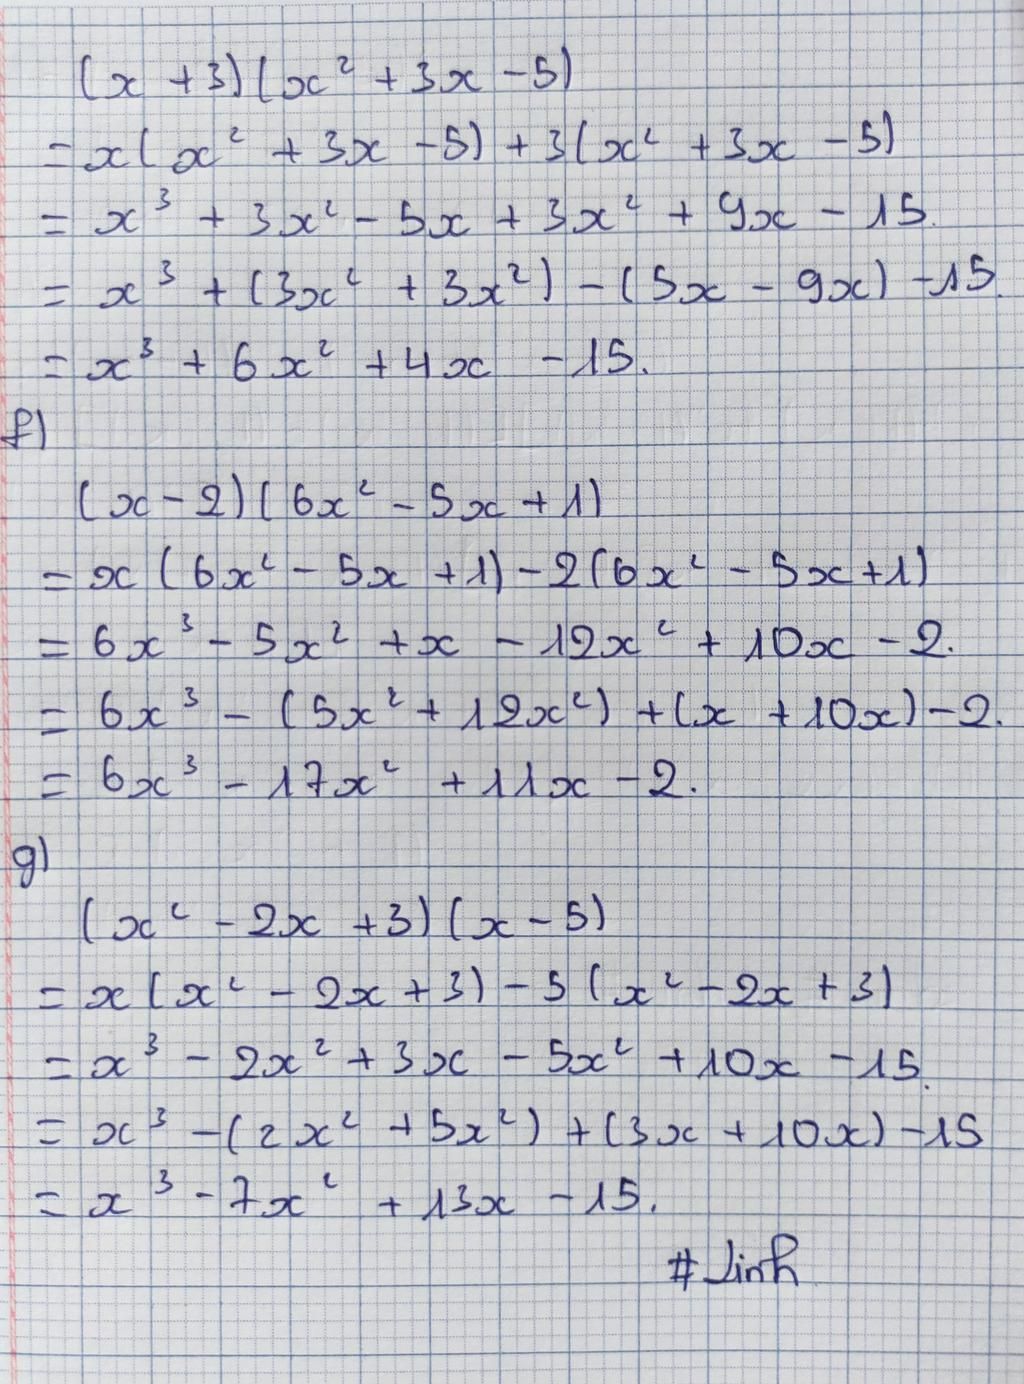 (x + 3)(x² + 3x - 5)
= x(x² + 3x - 5) + 3(x² + 3x - 5)
= x³ + 3x² - 5x + 3x² + 9x - 15.
= x³ + (3x² + 3x²) - (5x - 9x) - 15.
= x³ + 6x² + 4x - 15.
f)
(x - 2)(6x² - 5x + 1)
= x(6x² - 5x + 1) - 2(6x² - 5x + 1)
= 6x³ - 5x² + x - 12x² + 10x - 2.
= 6x³ - (5x² + 12x²) + (x + 10x) - 2.
= 6x³ - 17x² + 11x - 2.
g)
(x² - 2x + 3)(x - 5)
= x(x² - 2x + 3) - 5(x² - 2x + 3)
= x³ - 2x² + 3x - 5x² + 10x - 15.
= x³ - (2x² + 5x²) + (3x + 10x) - 15
= x³ - 7x² + 13x - 15.
# Linh